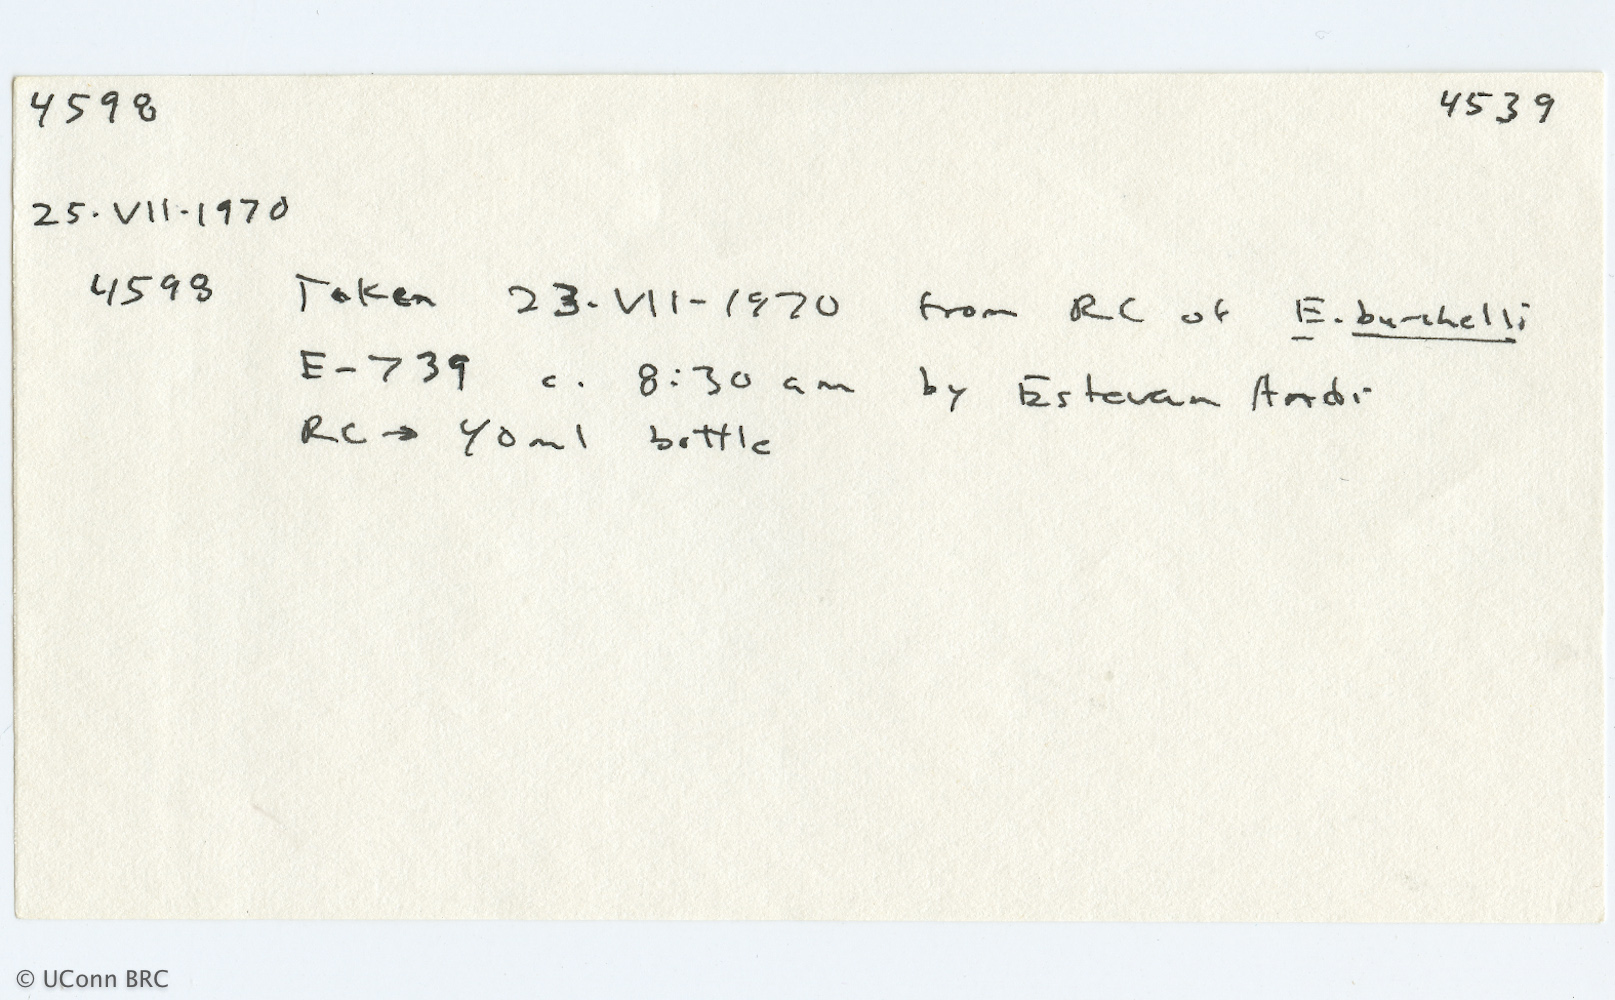 4598 4539
25.VII.1970
4598 Taken 23.VII-1970 from RC of E. burchelli
E-739 c. 8:30 am by Estevan Andi
RC → 40ml bottle
© UConn BRC